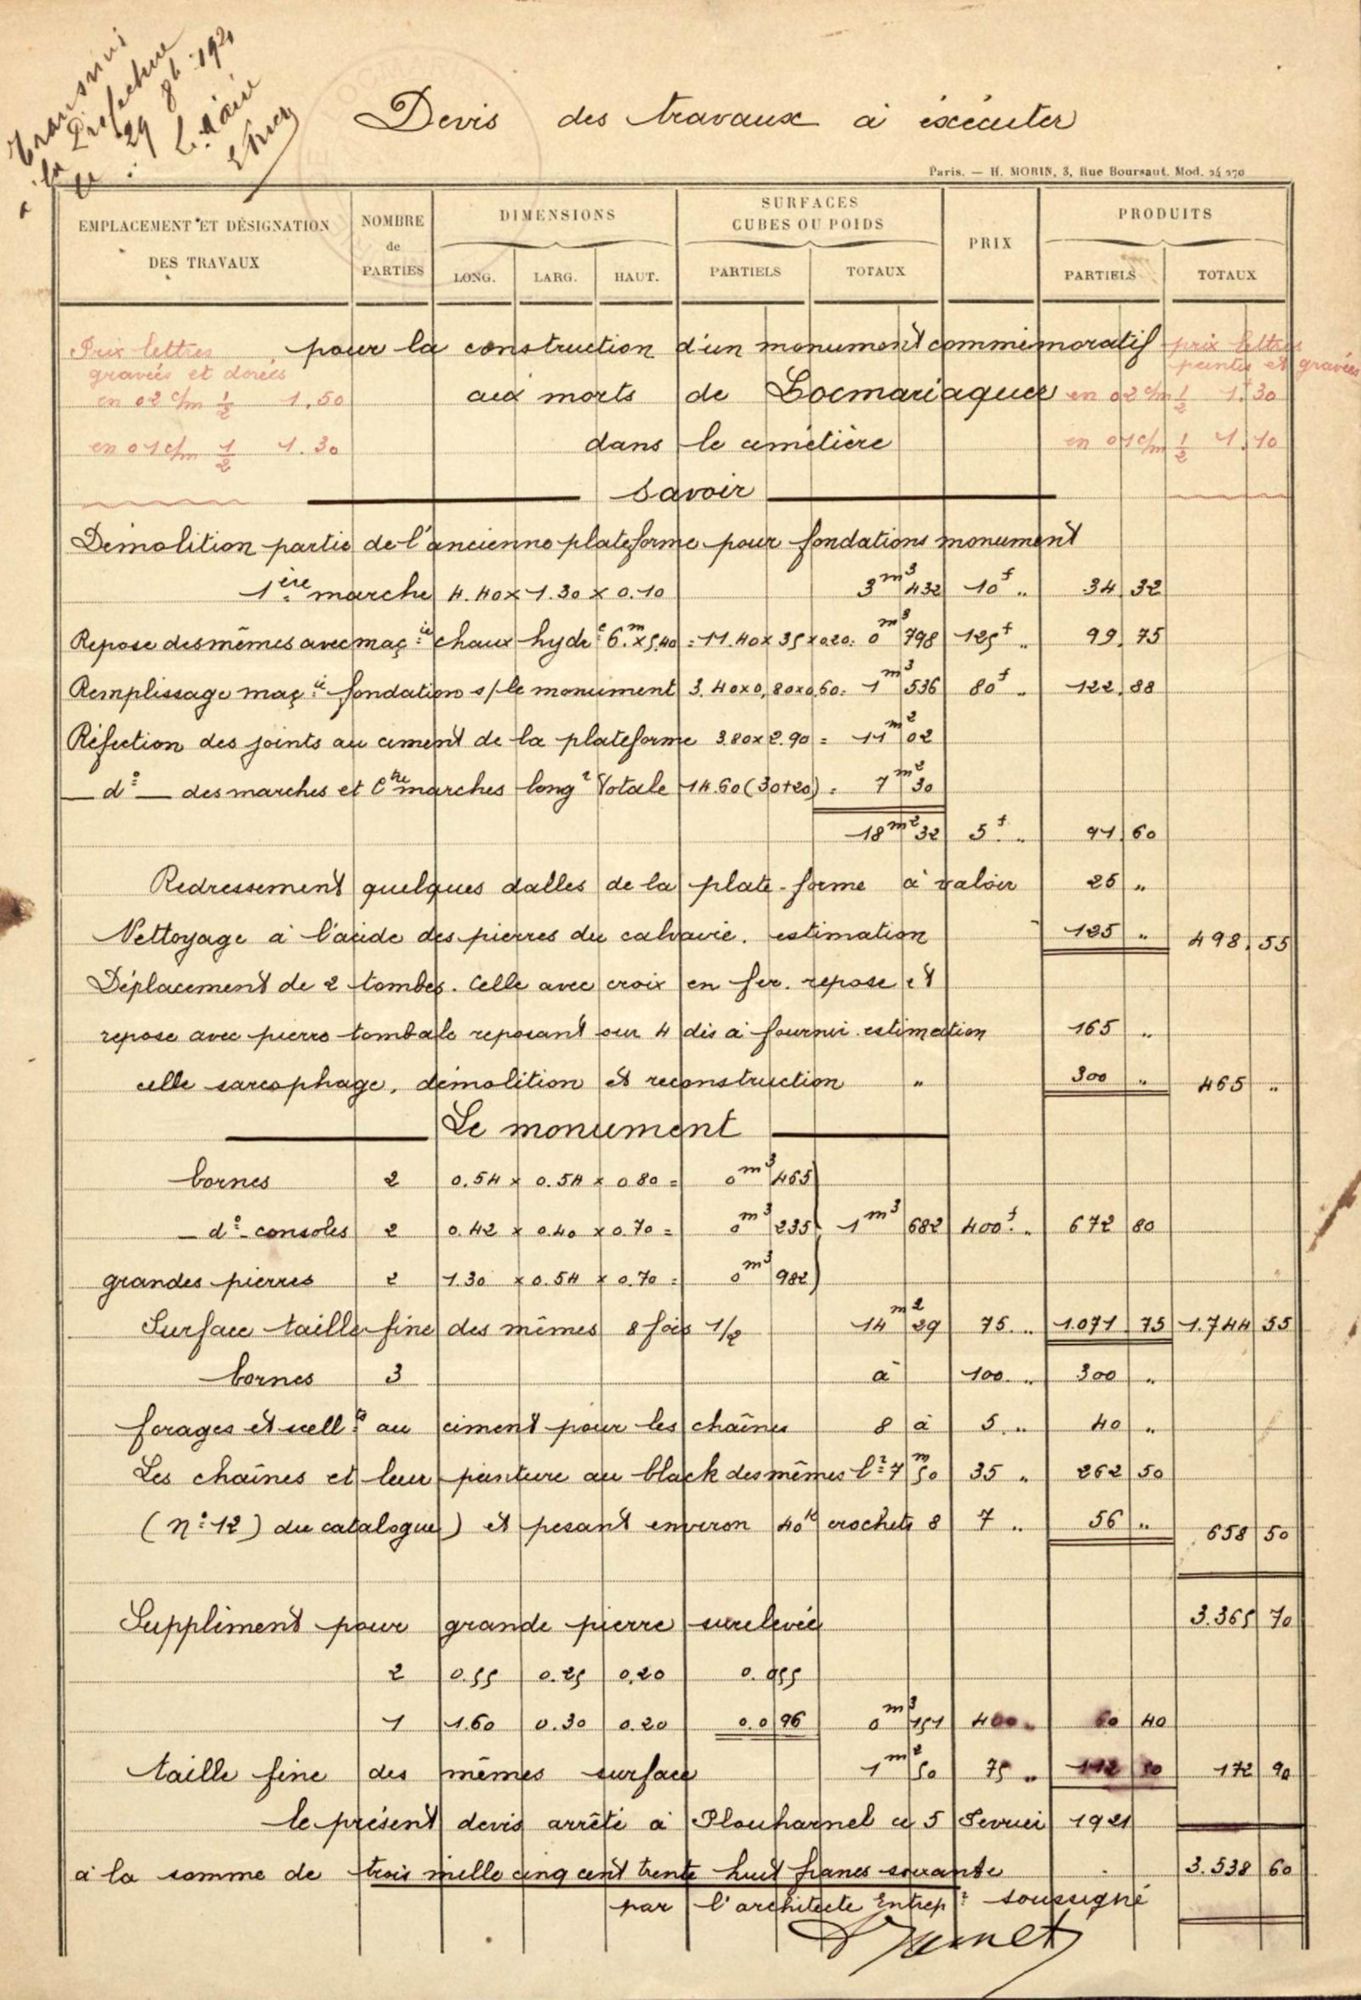 Transmis
à la Préfecture
le 29 8b 1921
Le Maire
Devis des travaux à éxécuter
Paris. — H. MORIN, 3, Rue Boursaut. Mod. 24 270
EMPLACEMENT ET DÉSIGNATION DES TRAVAUX NOMBRE de PARTIES DIMENSIONS SURFACES CUBES OU POIDS PRIX PRODUITS
LONG. LARG. HAUT. PARTIELS TOTAUX PARTIELS TOTAUX
Prix lettres
gravées et dorées
en 02 c/m 1/2 1.50
en 01 c/m 1/2 1.30
pour la construction d'un monument commémoratif
aux morts de Locmariaquer
dans le cimetière
prix lettres
peintes et gravées
en 02 c/m 1/2 1f30
en 01 c/m 1/2 1.10
Savoir
Démolition partie de l'ancienne plateforme pour fondations monument
1ère marche 4.40 x 1.30 x 0.10 3m3 432 10f „ 34,32
Repose des mêmes avec maç:ie chaux hyde 6.m x 5.40 = 11.40 x 35 x 0.20 = 0m3 798 125f „ 99.75
Remplissage maç:ie fondation s/ le monument 3.40 x 0,80 x 0,60 = 1m3 536 80f „ 122,88
Réfection des joints au ciment de la plateforme 3.80 x 2.90 = 11m2 02
— d° — des marches et Ctre marches longr totale 14.60 (30+20) = 7m2 30
18m2 32 5f „ 91,60
Redressement quelques dalles de la plate-forme à valoir 25 „
Nettoyage à l'acide des pierres du calvaire. estimation 125 „ 498,55
Déplacement de 2 tombes. Celle avec croix en fer. repose et
repose avec pierre tombale reposant sur 4 dés à fournir. estimation 165 „
celle sarcophage, démolition et reconstruction „ 300 „ 465 „
Le monument
bornes 2 0.54 x 0.54 x 0.80 = 0m3 465
— d° — consoles 2 0.42 x 0.40 x 0.70 = 0m3 235 1m3 682 400f „ 672 80
grandes pierres 2 1.30 x 0.54 x 0.70 = 0m3 982
Surface taille fine des mêmes 8 fois 1/2 14m2 29 75 „ 1.071,75 1.744 55
bornes 3 à 100 „ 300 „
forages et scell:ts au ciment pour les chaînes 8 à 5 „ 40 „
Les chaînes et leur peinture au black des mêmes l:r 7m50 35 „ 262 50
(n° 12) du catalogue) et pesant environ 40k crochets 8 7 „ 56 „ 658 50
3.365 70
Supplément pour grande pierre surelevée
2 0.55 0.25 0,20 0.055
1 1.60 0.30 0.20 0.096 0m3 151 400 „ 60 40
taille fine des mêmes surface 1m2 50 75 „ 112 50 172 90
le présent devis arrêté à Plouharnel ce 5 Fevrier 1921
à la somme de trois mille cinq cent trente huit francs soixante 3.538 60
par l'architecte Entrep:r soussigné